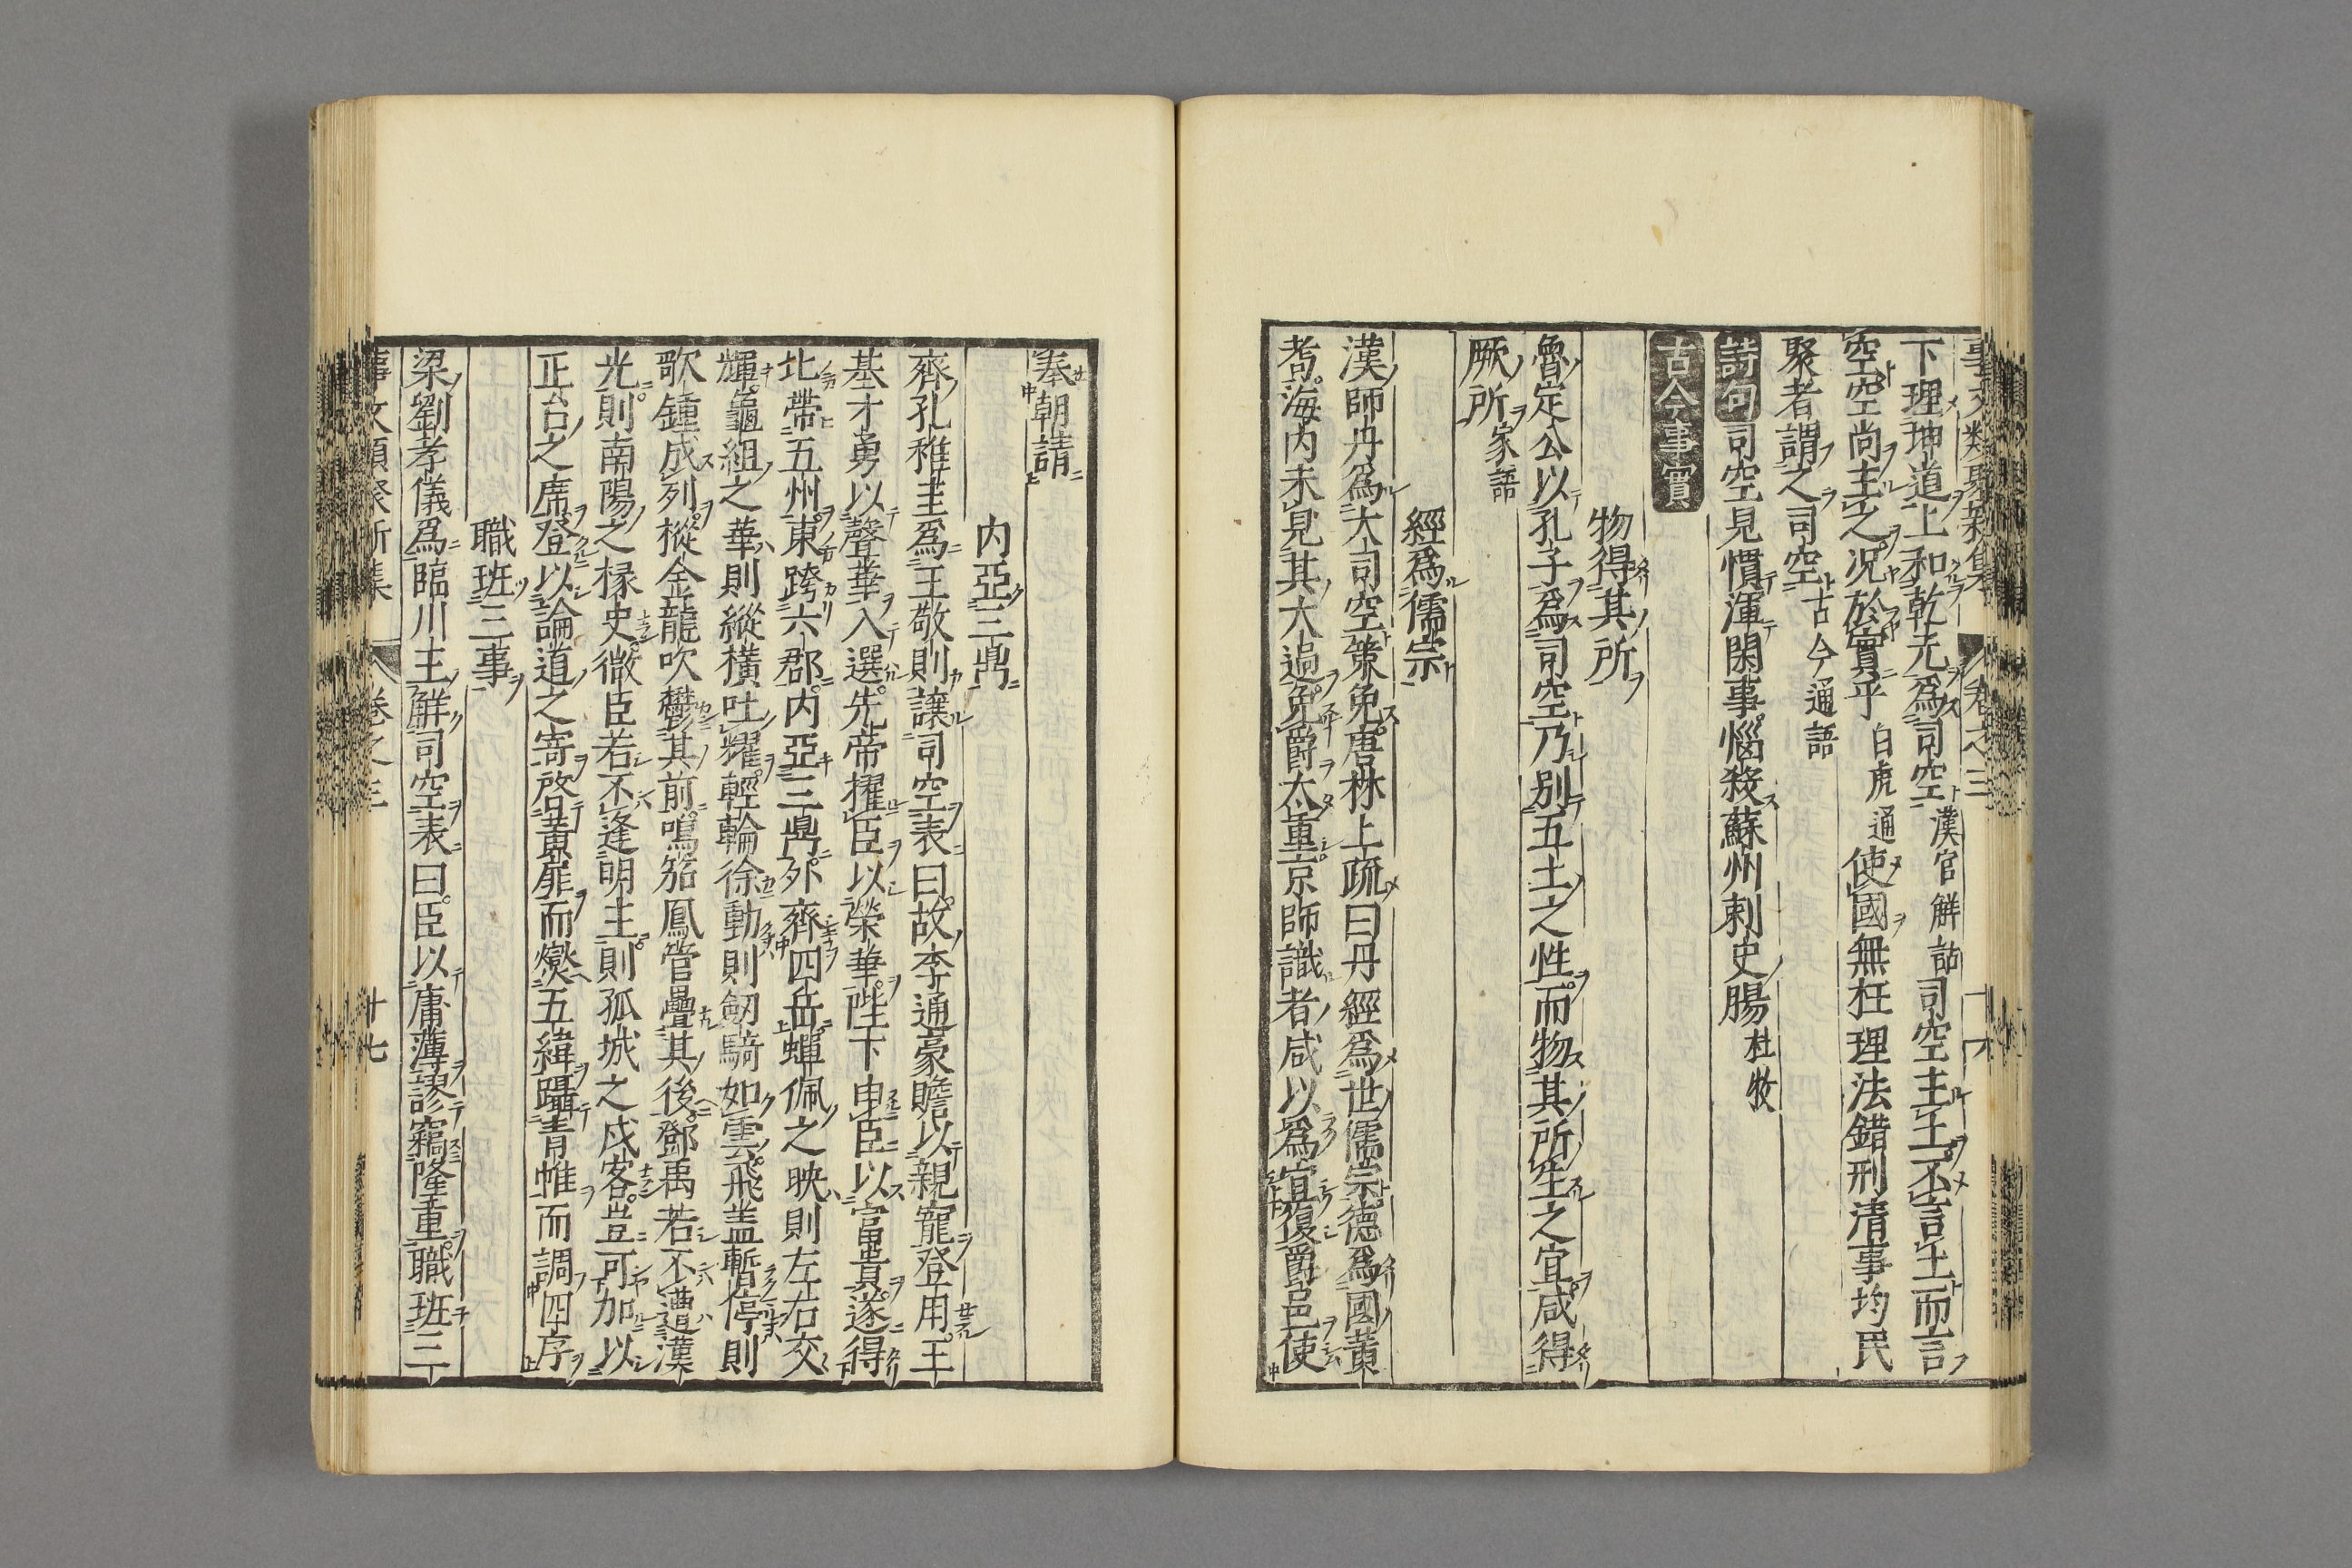 下理坤道上和乾光爲司空漢官解詁司空主土不言土而言
空空尚主之况於實乎白虎通使國無枉理法錯刑清事均民
聚者謂之司空古今通語
詩句司空見慣渾閑事惱殺蘇州刺史腸杜牧
古今事實
物得其所
魯定公以孔子爲司空乃別五土之性而物其所生之宜咸得
厥所家語
經爲儒宗
漢師丹爲大司空策免唐林上疏曰丹經爲世儒宗德爲國黄
耇海内未見其大過免爵太重京師識者咸以爲宜復爵邑使
奉朝請
内亞三鼎
齊孔稚圭爲王敬則讓司空表曰故李通豪贍以親寵登用王
基才勇以聲華入選先帝擢臣以榮華陛下申臣以富貴遂得
北帶五州東跨六郡内亞三鼎外齊四岳蟬佩之映則左右交
輝龜組之華則縱横吐耀輕輪徐動則劒騎如雲飛盖暫停則
歌鍾成列摐金龍吹鬱其前鳴笳鳳管疊其後鄧禹若不遭漢
光則南陽之掾史微臣若不逢明主則孤城之戍客豈可加以
正台之席登以論道之寄啓黄扉而燮五緯躡青帷而調四序
職班三事
梁劉孝儀爲臨川王解司空表曰臣以庸薄謬竊隆重職班三
事文類聚新集 卷之三 廿七